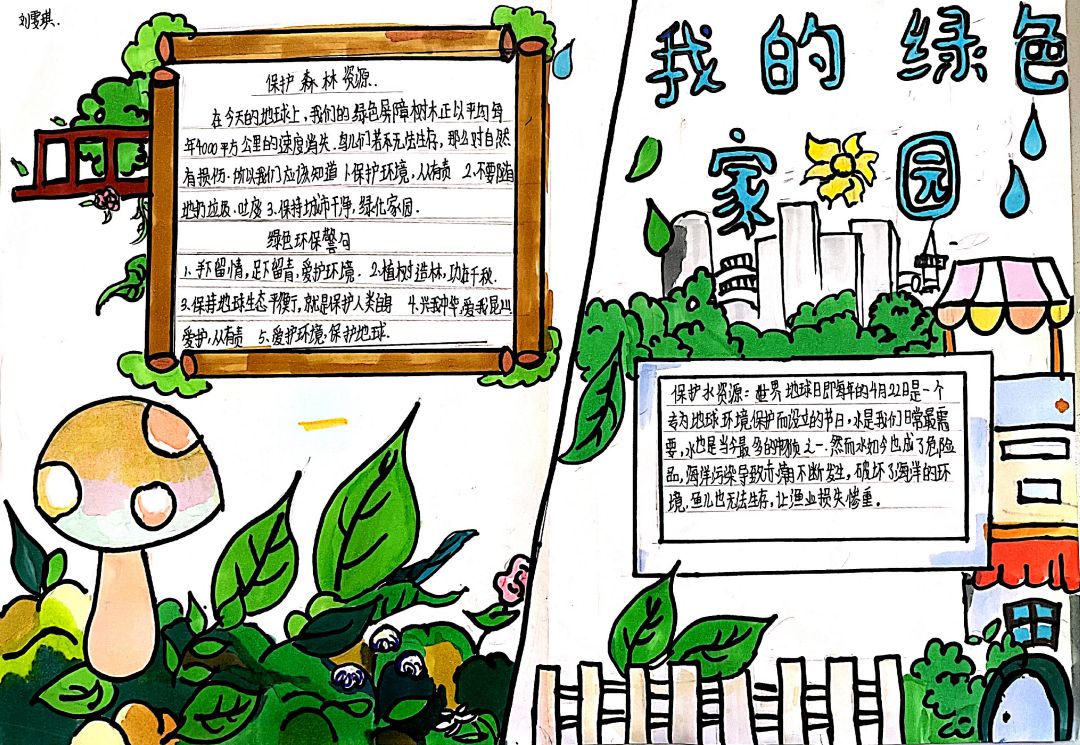 刘雯琪.
我的绿色
家园
保护森林资源.
在今天的地球上,我们的绿色屏障树木正以平均每
年4000平方公里的速度消失.鸟儿们若无法生存,那么对自然
有损伤.所以我们应该知道1.保护环境,从有责 2.不要随
地扔垃圾.吐痰 3.保持城市干净,绿化家园.
绿色环保警句
1、手下留情,足下留青,爱护环境. 2.植树造林,功在千秋.
3.保持地球生态平衡,就是保护人类自身 4.兴我中华,爱我昆山
爱护,从有责 5、爱护环境,保护地球.
保护水资源:世界地球日即每年的4月22日是一个
专为地球环境保护而设立的节日,水是我们日常最需
要,水也是当今最多的物质之一.然而水如今也成了危险
品,海洋污染导致赤潮不断发生,破坏了海洋的环
境,鱼儿也无法生存,让渔业损失惨重。